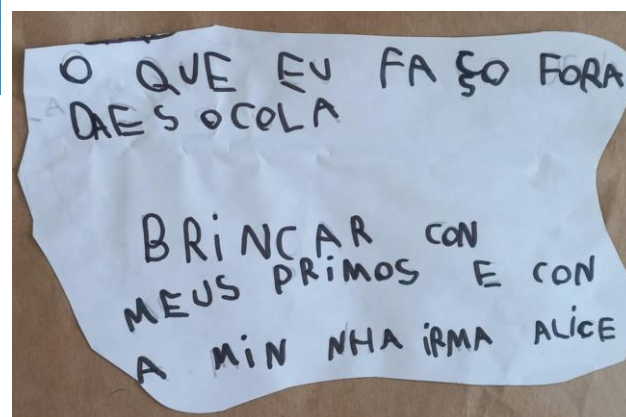 O QUE EU FAÇO FORA
DAESOCOLA
BRINCAR CON
MEUS PRIMOS E CON
A MIN NHA IRMA ALICE